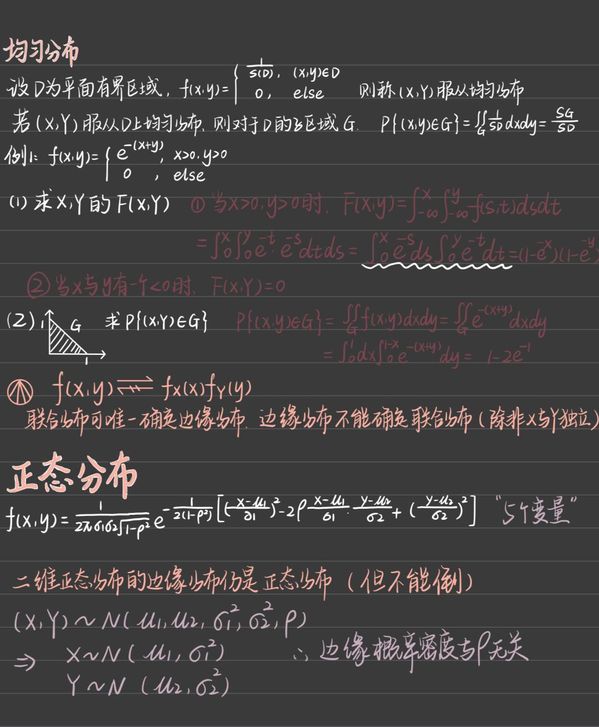 均匀分布
设D为平面有界区域, f(x,y)={ 1/S(D), (x,y)∈D
0, else 则称(X,Y)服从均匀分布
若(X,Y)服从D上均匀分布,则对于D的子区域G. P{(x,y)∈G}=∬_G 1/SD dxdy= SG/SD
例1: f(x,y)={ e^{-(x+y)}, x>0,y>0
0 , else
(1) 求X,Y的F(X,Y) ① 当x>0,y>0时, F(x,y)=∫_{-∞}^x∫_{-∞}^y f(s,t)dsdt
=∫_0^x∫_0^y e^{-t}·e^{-s}dtds=∫_0^x e^{-s}ds∫_0^y e^{-t}dt=(1-e^{-x})(1-e^{-y})
② 当x与y有一个<0时, F(x,Y)=0
(2) 1 G 1 求P{(X,Y)∈G} P{(x,y)∈G}=∬_G f(x,y)dxdy=∬_G e^{-(x+y)}dxdy
=∫_0^1dx∫_0^{1-x}e^{-(x+y)}dy= 1-2e^{-1}
f(x,y)⇌f_X(x)f_Y(y)
联合分布可唯一确定边缘分布,边缘分布不能确定联合分布(除非X与Y独立)
正态分布
f(x,y)=1/(2πσ1σ2√(1-ρ²)) e^{-1/(2(1-ρ²))[((x-μ1)/σ1)²-2ρ (x-μ1)/σ1·(y-μ2)/σ2+((y-μ2)/σ2)²]} “5个变量”
二维正态分布的边缘分布仍是正态分布(但不能倒)
(X,Y)~N(μ1,μ2,σ1²,σ2²,ρ)
⇒ X~N(μ1,σ1²) ∴边缘概率密度与ρ无关
Y~N(μ2,σ2²)